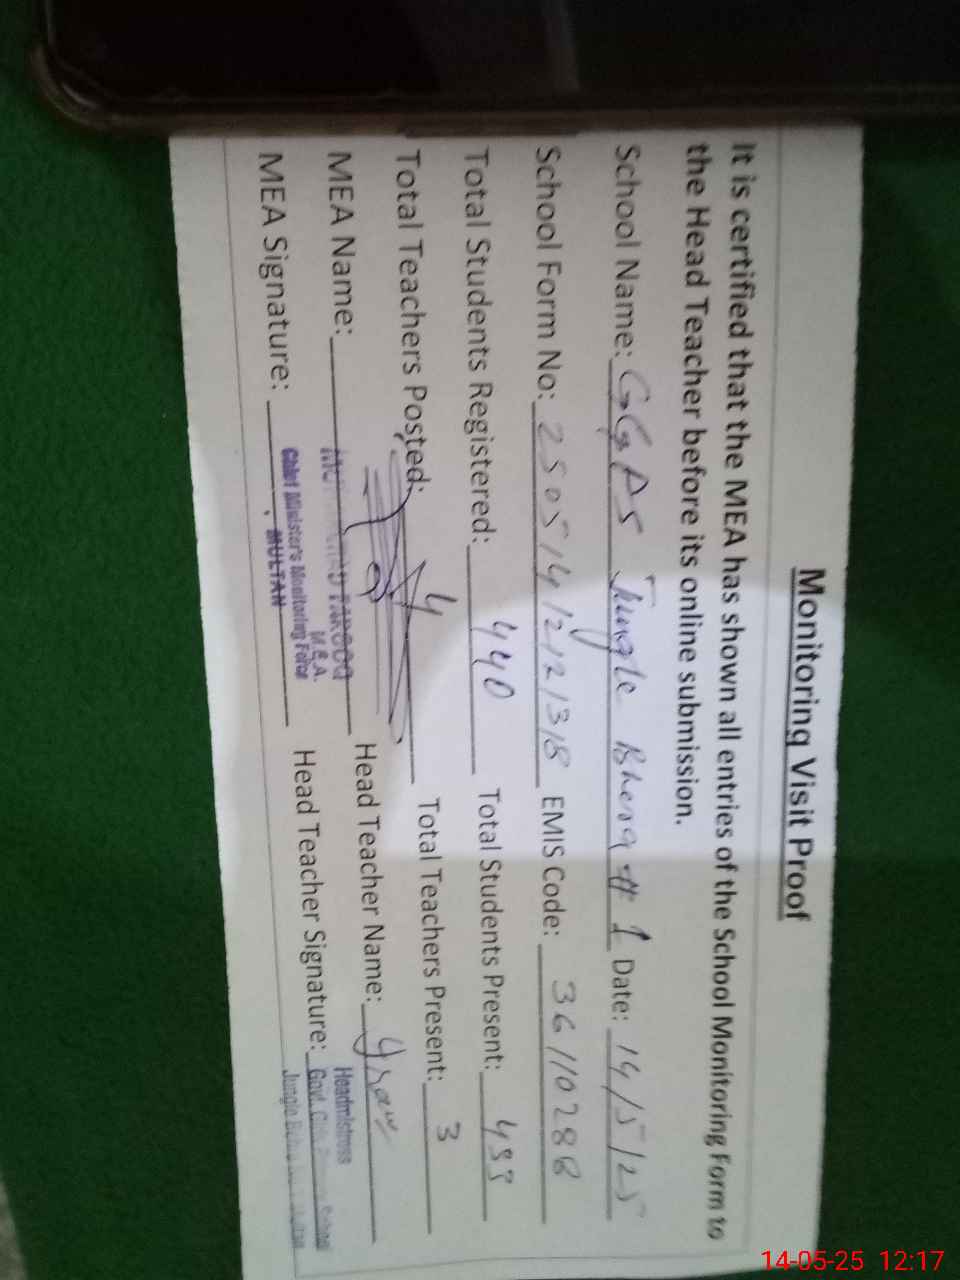 Monitoring Visit Proof
It is certified that the MEA has shown all entries of the School Monitoring Form to
the Head Teacher before its online submission.
School Name: GGPS Jungle Bhera # 1 Date: 14/5/25
School Form No: 250514121218 EMIS Code: 36110288
Total Students Registered: 440 Total Students Present: 433
Total Teachers Posted: 4 Total Teachers Present: 3
MEA Name: FAROOQ Head Teacher Name:
M.E.A.
MEA Signature: Chief Minister's Monitoring Force Head Teacher Signature: Headmistress
MULTAN
Govt. Girls School
Jungle
14-05-25 12:17